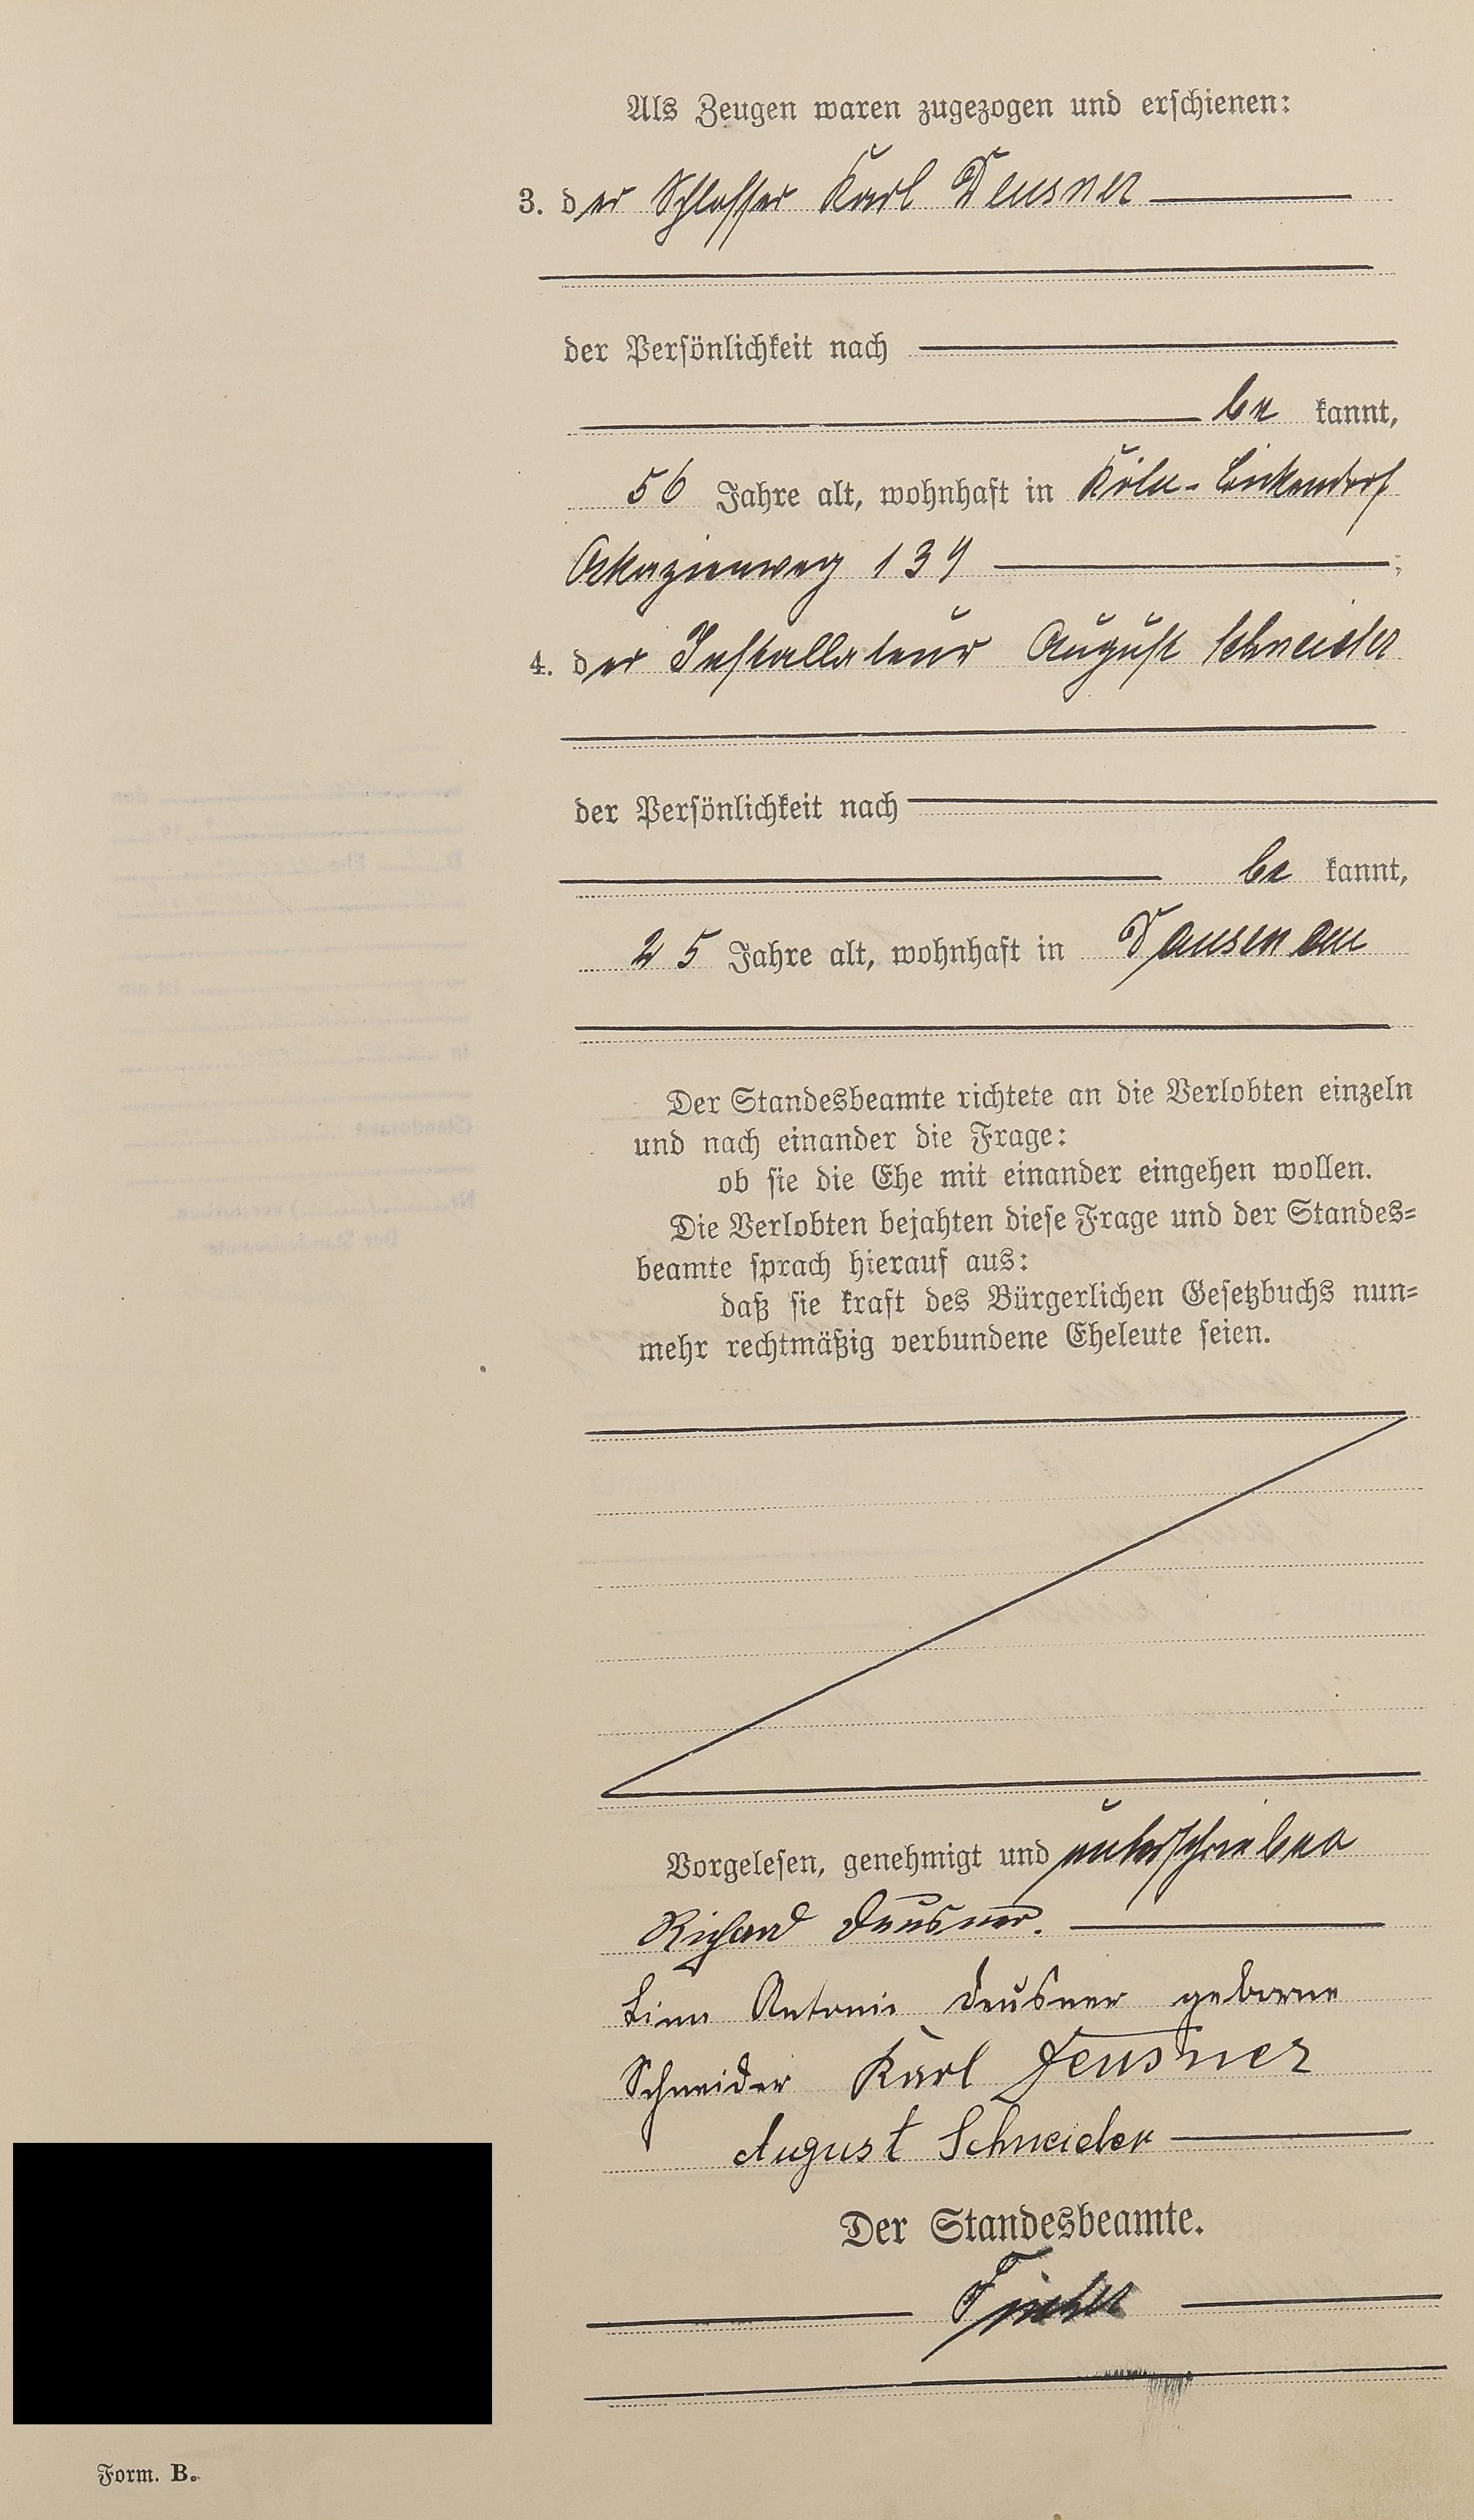 Als Zeugen waren zugezogen und erschienen:
3. der Schlosser Karl Deusner
der Persönlichkeit nach
be kannt,
56 Jahre alt, wohnhaft in Köln-Bickendorf
Akazienweg 139 ;
4. der Installateur August Schneider
der Persönlichkeit nach
be kannt,
25 Jahre alt, wohnhaft in Dausenau
Der Standesbeamte richtete an die Verlobten einzeln
und nach einander die Frage:
ob sie die Ehe mit einander eingehen wollen.
Die Verlobten bejahten diese Frage und der Standes=
beamte sprach hierauf aus:
daß sie kraft des Bürgerlichen Gesetzbuchs nun=
mehr rechtmäßig verbundene Eheleute seien.
Vorgelesen, genehmigt und unterschrieben
Richard Deusner.
Lina Antonie Deusner geborne
Schneider Karl Deusner
August Schneider
Der Standesbeamte.
Form. B.